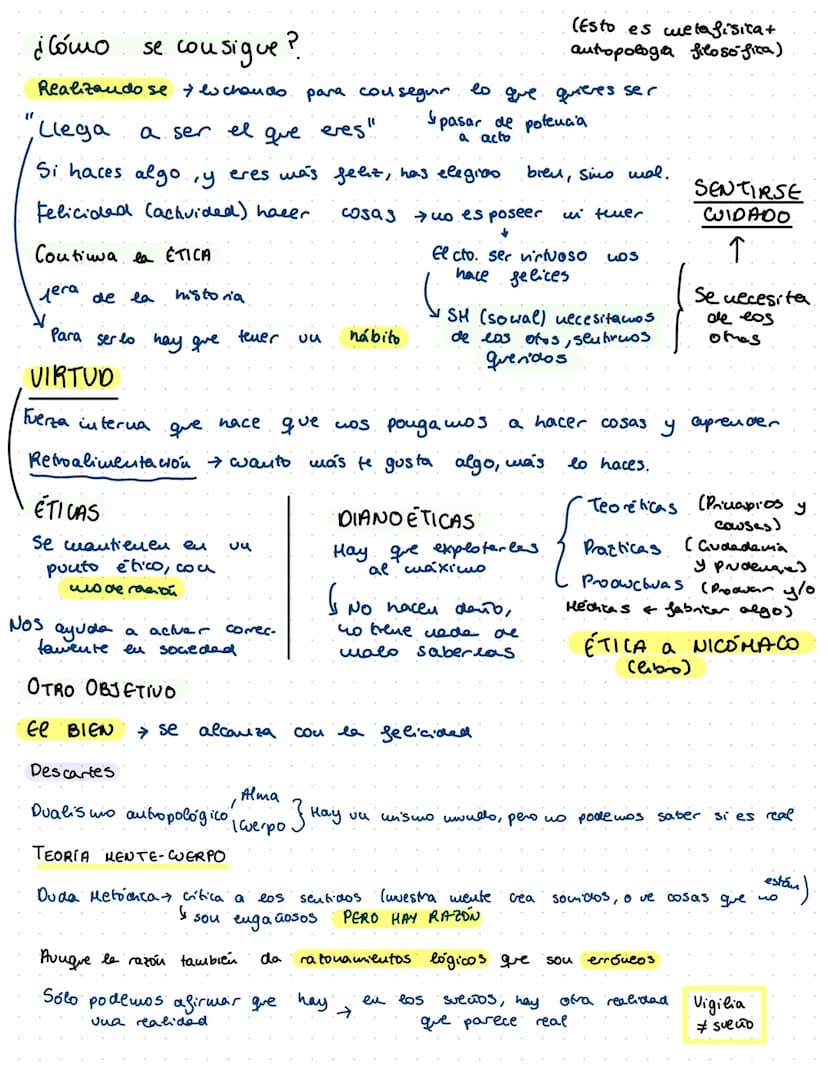 ¿Cómo se consigue?
(Esto es metafísica +
antropología filosófica)
Realizandose → luchando para conseguir lo que quieres ser
"Llega a ser el que eres"
↳ pasar de potencia
a acto
Si haces algo, y eres más feliz, has elegido bien, sino mal.
Felicidad (actividad) hacer cosas → no es poseer ni tener
Continua la ÉTICA
El cto. ser virtuoso nos
hace felices
1era de la historia
↳ SH (social) necesitamos
de los otos, sentirnos
queridos
SENTIRSE
CUIDADO
↑
Se necesita
de los
otros
Para serlo hay que tener un hábito
VIRTUD
Fuerza interna que hace que nos pongamos a hacer cosas y aprender
Retroalimentación → cuanto más te gusta algo, más lo haces.
ÉTICAS
Se mantienen en un
punto ético, con
moderación
Nos ayuda a actuar correc-
tamente en sociedad
DIANOÉTICAS
Hay que explotarlas
al máximo
↳ No hacen daño,
no tiene nada de
malo saberlas
Teoréticas (Principios y
causas)
Practicas (Ciudadanía
y prudencia)
Productivas (Producir y/o
Médicas ← fabricar algo)
ÉTICA a NICÓMACO
(libro)
OTRO OBJETIVO
El BIEN → se alcanza con la felicidad
Descartes
Dualismo antropológico
Alma
Cuerpo
Hay un mismo mundo, pero no podemos saber si es real
TEORÍA MENTE-CUERPO
Duda Metódica → crítica a los sentidos (nuestra mente crea sonidos, o ve cosas que no están)
↳ son engañosos PERO HAY RAZÓN
Aunque la razón también da razonamientos lógicos que son erróneos
Sólo podemos afirmar que hay
una realidad
→ en los sueños, hay otra realidad
que parece real
Vigilia
≠ sueño